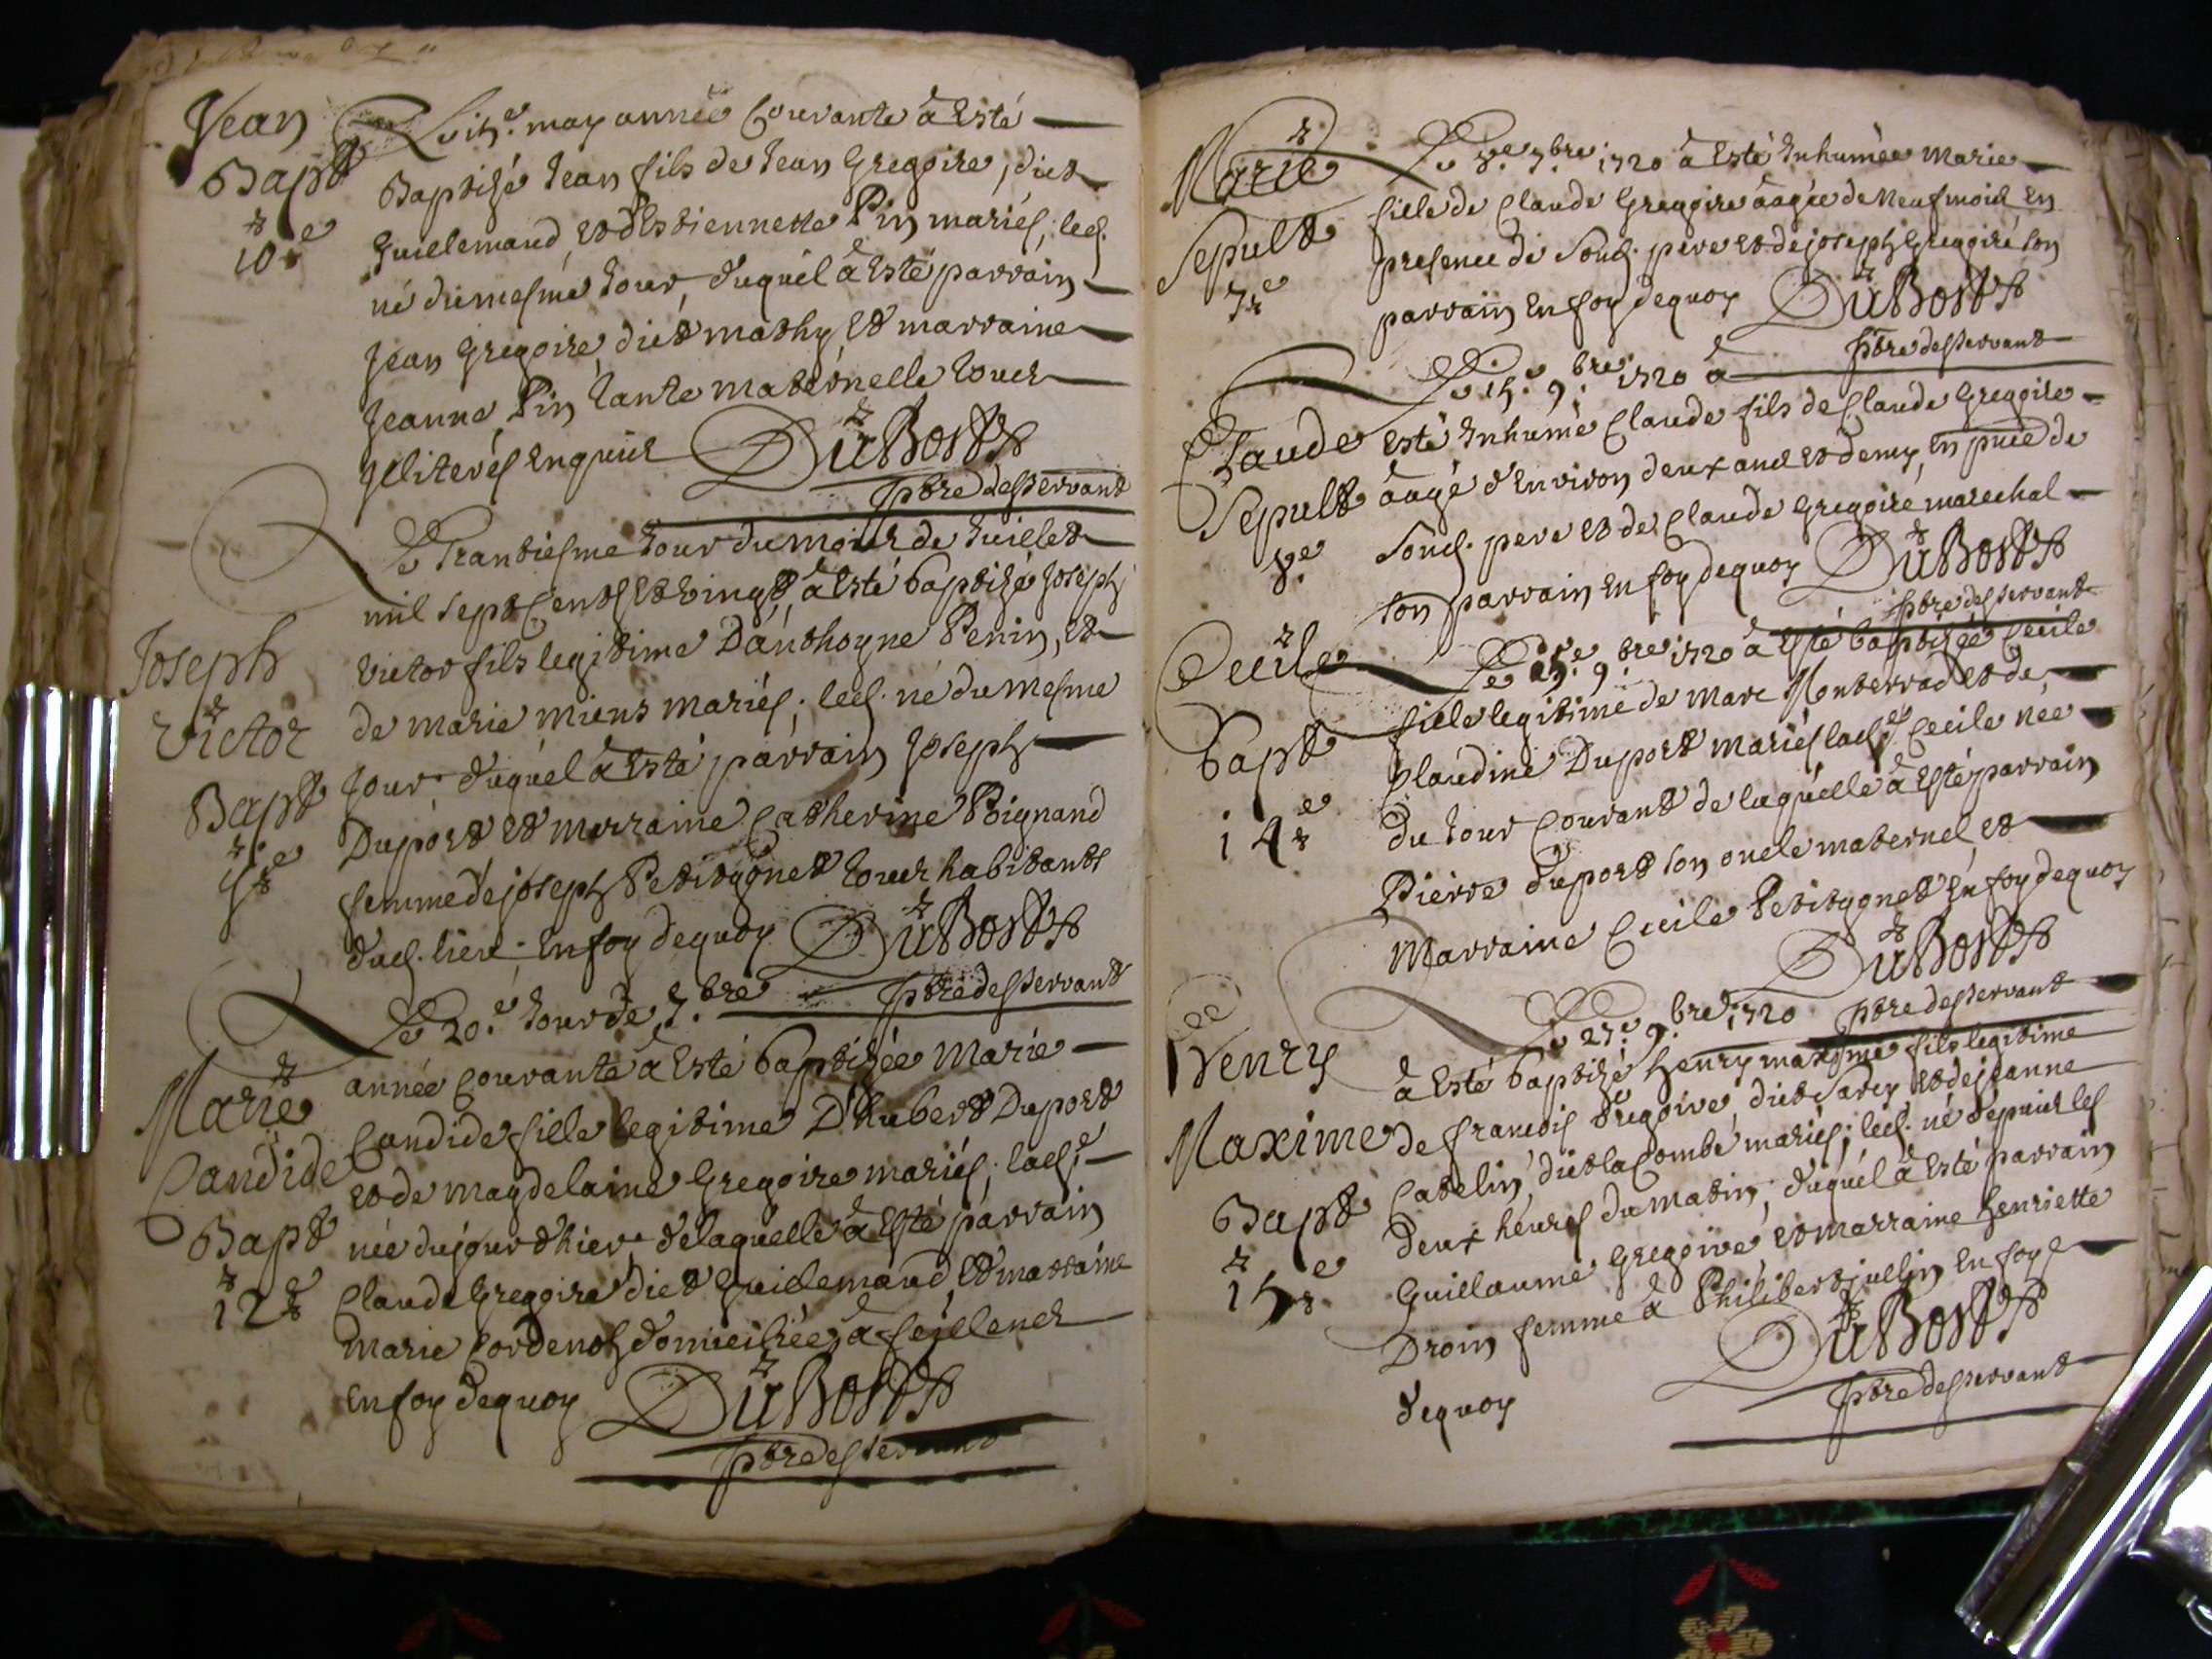 Jean
Bapt
10e
may année Courante à Esté
Baptizé Jean fils de Jean Gregoire, dict
Guillemaud, et d'Estiennette Pin mariés; led.
né du mesme Jour, duquel à Esté parrain
Jean Gregoire, dict mathy, et marraine
Jeanne Pin tante maternelle tous
Illiterés Enquis
DuBost
pbre desservant
Joseph
Victor
Bapt
Le Trantiesme Jour du mois de Juillet
mil sept Cents et vingt, à Esté baptizé Joseph
Victor fils legitime D'anthoyne Penin, et
de marie miens mariés; led. né du mesme
Jour duquel à Esté parrain Joseph
Duport et marraine Catherine Poignand
femme de joseph Petitygnet tous habitants
dud. lieu; En foy dequoy
DuBost
pbre desservant
Marie
Candide
Bapt
12e
Le 20.e Jour de 7.bre
année courante à Esté baptizée Marie
Candide fille legitime D'hubert Duport
et de magdelaine Gregoire mariés; lad.e
née du jour d'hier, de laquelle à Esté parrain
Claude Gregoire dict Guillemaud, et marraine
marie domiciliée à
En foy dequoy
DuBost
pbre desservant
Marie
Sepult
7e
Le 8.e 7.bre 1720 à Esté Inhumée Marie
fille de Claude Gregoire âagée de Neuf mois En
presence de Sond. pere et de joseph Gregoire son
parrain En foy dequoy
DuBost
pbre desservant
Le 15.e 9.bre 1720 à
Claude
Sepult
8.e
Esté Inhumé Claude fils de Claude Gregoire
âagé d'Environ deux ans et demy, En pnce de
Sond. pere et de Claude Gregoire marechal
son parrain En foy dequoy
DuBost
pbre desservant
Cecile
bapt
14e
Le 25.e 9.bre 1720 à Esté baptizée Cecile
fille legitime de Marc Monterrad et de
Claudine Duport mariés lad.e Cecile née
du Jour Courant de laquelle à Esté parrain
Pierre duport son oncle maternel et
Marraine Cecile Petitygnet En foy dequoy
DuBost
pbre desservant
Henry
Maxime
Bapt
15e
Le 27.e 9.bre 1720
à Esté baptizé henry maxime fils legitime
de francois Gregoire, dict Sarcy et de jeanne
Catelin, dict la Combe mariés; led. né depuis les
deux heures du matin; duquel à Esté parrain
Guillaume Gregoire et marraine henriette
Droin femme à Philibert jullin En foy
dequoy
DuBost
pbre desservant